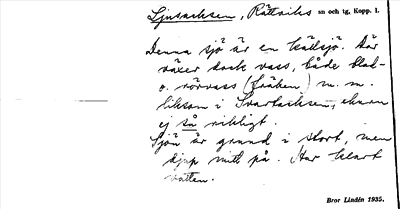 Ljustacksen, Rättviks sn och tg, Kopp. l.
Denna sjö är en källsjö. Där
växer dock vass, både blad-
o. rörvass (fräken) m. m.
liksom i Svartacksen, ehuru
ej så rikligt.
Sjön är grund i stort, men
djup mitt på. Har klart
vatten.
Bror Lindén 1935.